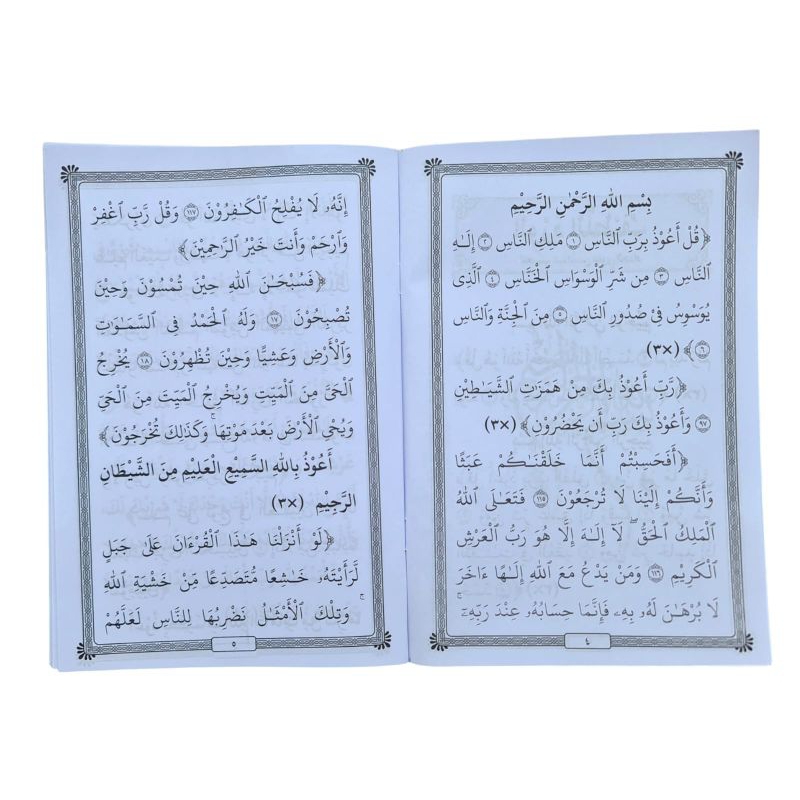 بِسْمِ اللهِ الرَّحْمٰنِ الرَّحِيْمِ
﴿قُلْ أَعُوْذُ بِرَبِّ ٱلنَّاسِ ١ مَلِكِ ٱلنَّاسِ ٢ إِلَـٰهِ
ٱلنَّاسِ ٣ مِن شَرِّ ٱلْوَسْوَاسِ ٱلْخَنَّاسِ ٤ ٱلَّذِى
يُوَسْوِسُ فِىْ صُدُورِ ٱلنَّاسِ ٥ مِنَ ٱلْجِنَّةِ وَٱلنَّاسِ
٦﴾ (×٣)
﴿رَّبِّ أَعُوْذُ بِكَ مِنْ هَمَزَٰتِ ٱلشَّيَـٰطِيْنِ
٩٧ وَأَعُوْذُ بِكَ رَبِّ أَن يَحْضُرُوْنِ﴾ (×٣)
﴿أَفَحَسِبْتُمْ أَنَّمَا خَلَقْنَـٰكُمْ عَبَثًا
وَأَنَّكُمْ إِلَيْنَا لَا تُرْجَعُوْنَ ١١٥ فَتَعَـٰلَى ٱللهُ
ٱلْمَلِكُ ٱلْحَقُّ ۖ لَآ إِلَـٰهَ إِلَّا هُوَ رَبُّ ٱلْعَرْشِ
ٱلْكَرِيْمِ ١١٦ وَمَنْ يَدْعُ مَعَ ٱللهِ إِلَـٰهًا ءَاخَرَ
لَا بُرْهَـٰنَ لَهُۥ بِهِۦ فَإِنَّمَا حِسَابُهُۥ عِنْدَ رَبِّهِۦٓ ۚ
٤
إِنَّهُۥ لَا يُفْلِحُ ٱلْكَـٰفِرُوْنَ ١١٧ وَقُلْ رَّبِّ ٱغْفِرْ
وَٱرْحَمْ وَأَنتَ خَيْرُ ٱلرَّٰحِمِيْنَ﴾
﴿فَسُبْحَـٰنَ ٱللهِ حِيْنَ تُمْسُوْنَ وَحِيْنَ
تُصْبِحُوْنَ ١٧ وَلَهُ ٱلْحَمْدُ فِى ٱلسَّمَـٰوَٰتِ
وَٱلْأَرْضِ وَعَشِيًّا وَحِيْنَ تُظْهِرُوْنَ ١٨ يُخْرِجُ
ٱلْحَىَّ مِنَ ٱلْمَيِّتِ وَيُخْرِجُ ٱلْمَيِّتَ مِنَ ٱلْحَىِّ
وَيُحْىِ ٱلْأَرْضَ بَعْدَ مَوْتِهَا ۚ وَكَذَٰلِكَ تُخْرَجُوْنَ﴾
أَعُوْذُ بِاللهِ السَّمِيْعِ الْعَلِيْمِ مِنَ الشَّيْطَانِ
الرَّجِيْمِ (×٣)
﴿لَوْ أَنْزَلْنَا هَـٰذَا ٱلْقُرْءَانَ عَلَىٰ جَبَلٍ
لَّرَأَيْتَهُۥ خَـٰشِعًا مُّتَصَدِّعًا مِّنْ خَشْيَةِ ٱللهِ
ۚ وَتِلْكَ ٱلْأَمْثَـٰلُ نَضْرِبُهَا لِلنَّاسِ لَعَلَّهُمْ
٥